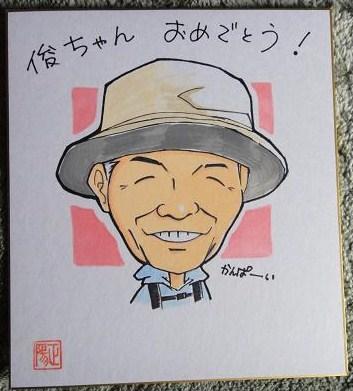 俊ちゃん おめでとう!
かんぱーい